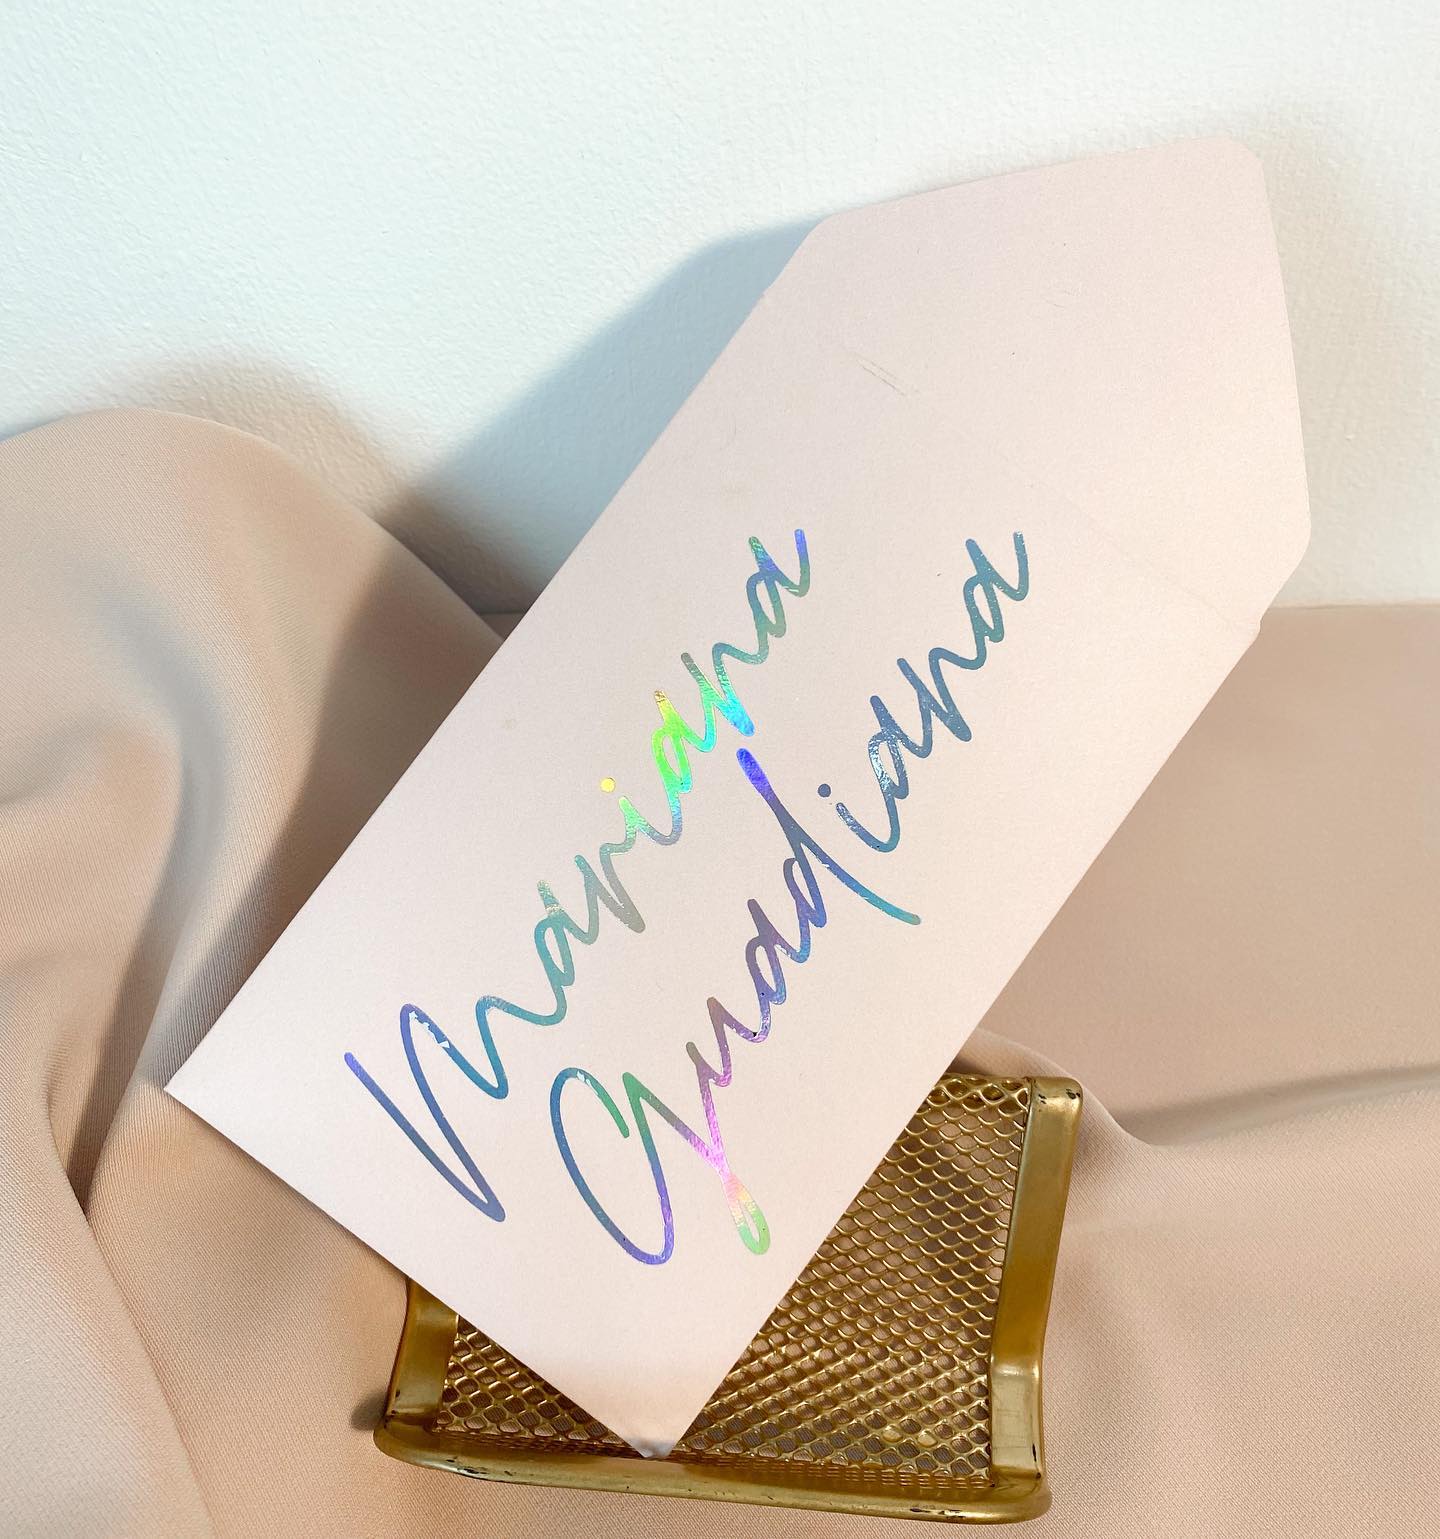 Mariana
Guadiana